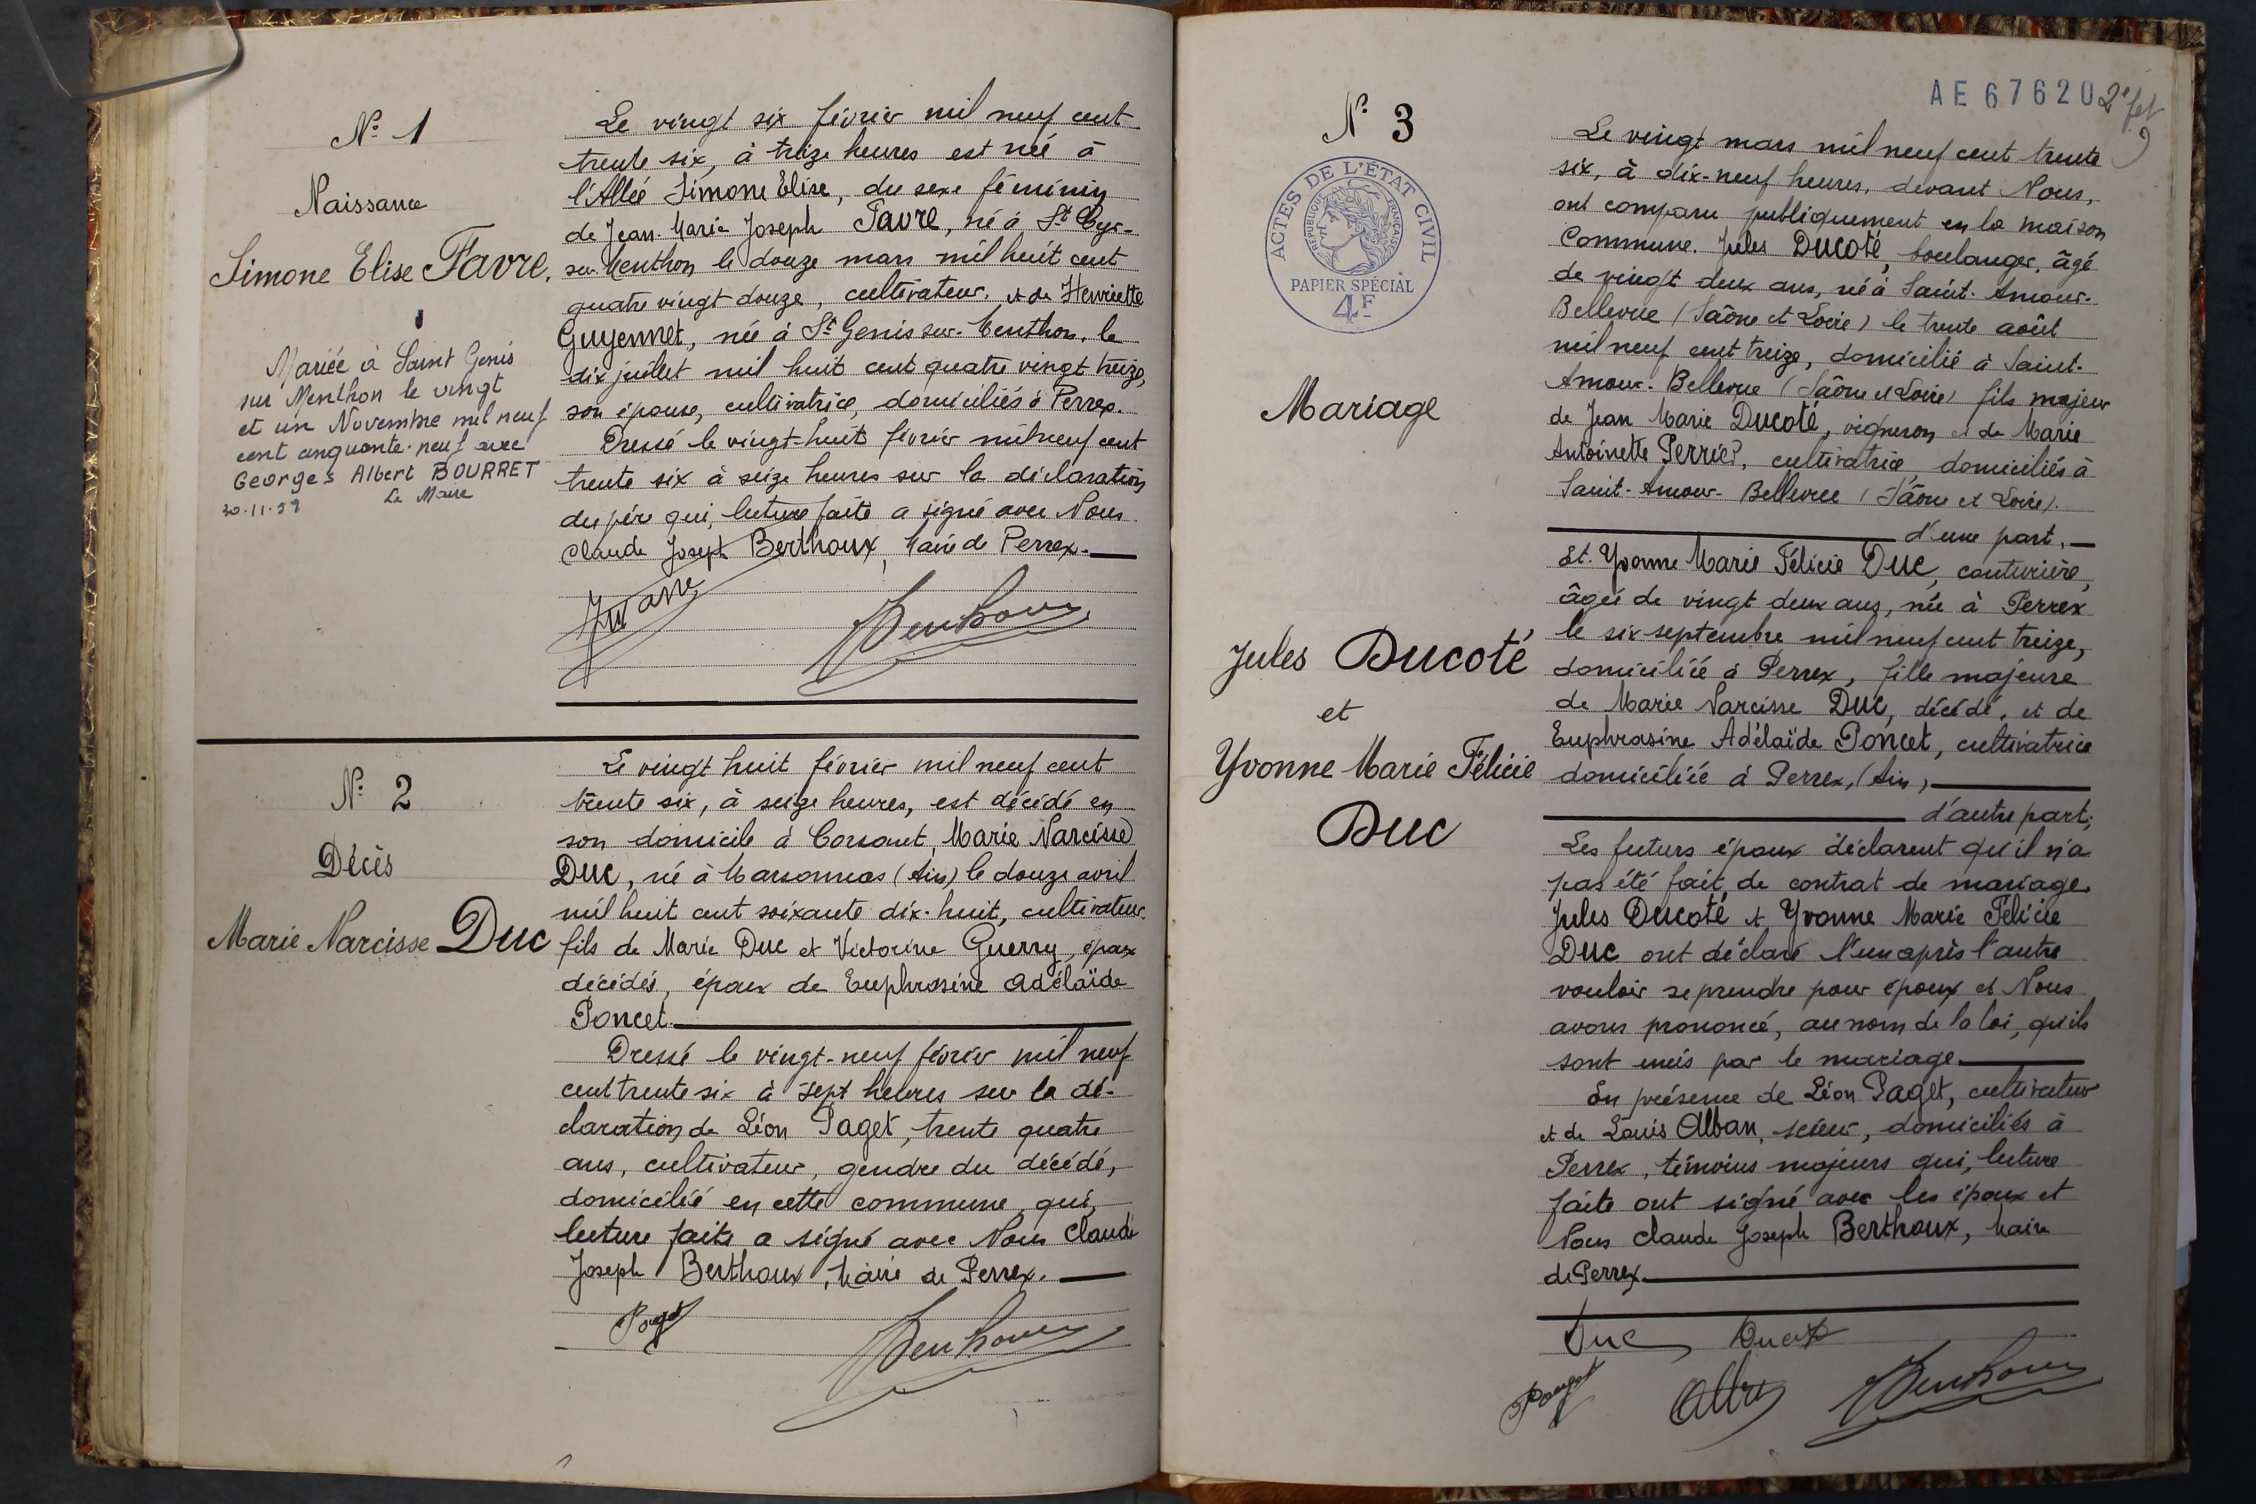 N° 1
Naissance
Simone Elise Favre.
Mariée à Saint Genis
sur Menthon le vingt
et un Novembre mil neuf
cent cinquante-neuf avec
Georges Albert BOURRET
Le Maire
30.11.59
Le vingt six février mil neuf cent
trente six, à treize heures est née à
l'Allée Simone Elise, du sexe féminin
de Jean Marie Joseph Favre, né à St Cyr-
sur-Menthon le douze mars mil huit cent
quatre vingt douze, cultivateur, et de Henriette
Guyennet, née à St Genis sur-Menthon, le
dix juillet mil huit cent quatre vingt treize,
son épouse, cultivatrice, domiciliés à Perrex.
Dressé le vingt-huit février mil neuf cent
trente six à seize heures sur la déclaration
du père qui, lecture faite a signé avec Nous
Claude Joseph Berthoux, Maire de Perrex.
Berthoux
N° 2
Décès
Marie Narcisse Duc
Le vingt huit février mil neuf cent
trente six, à seize heures, est décédé en
son domicile à Corsant, Marie Narcisse
Duc, né à Marsonnas (Ain) le douze avril
mil huit cent soixante dix-huit, cultivateur
fils de Marie Duc et Victorine Guerry, époux
décédés, époux de Euphrosine Adélaïde
Poncet.
Dressé le vingt-neuf février mil neuf
cent trente six à sept heures sur la dé-
claration de Léon Paget, trente quatre
ans, cultivateur, gendre du décédé,
domicilié en cette commune, qui,
lecture faite a signé avec Nous Claude
Joseph Berthoux, Maire de Perrex.
Paget Berthoux
AE 67620 2e fet
N° 3
ACTES DE L'ÉTAT CIVIL
RÉPUBLIQUE FRANÇAISE
PAPIER SPÉCIAL
4F
Mariage
Jules Ducoté
et
Yvonne Marie Félicie
Duc
Le vingt mars mil neuf cent trente
six, à dix-neuf heures, devant Nous,
ont comparu publiquement en la maison
Commune. Jules Ducoté, boulanger, âgé
de vingt deux ans, né à Saint-Amour-
Bellevue (Saône et Loire) le trente août
mil neuf cent treize, domicilié à Saint-
Amour-Bellevue (Saône et Loire) fils majeur
de Jean Marie Ducoté, vigneron et de Marie
Antoinette Perrier, cultivatrice, domiciliés à
Saint-Amour-Bellevue (Saône et Loire).
d'une part,
Et Yvonne Marie Félicie Duc, couturière,
âgée de vingt deux ans, née à Perrex
le six septembre mil neuf cent treize,
domiciliée à Perrex, fille majeure
de Marie Narcisse Duc, décédé, et de
Euphrasine Adélaïde Poncet, cultivatrice
domiciliée à Perrex, (Ain),
d'autre part;
Les futurs époux déclarent qu'il n'a
pas été fait de contrat de mariage.
Jules Ducoté et Yvonne Marie Félicie
Duc ont déclaré l'un après l'autre
vouloir se prendre pour époux et Nous
avons prononcé, au nom de la loi, qu'ils
sont unis par le mariage
En présence de Léon Paget, cultivateur
et de Louis Alban, scieur, domiciliés à
Perrex, témoins majeurs qui, lecture
faite ont signé avec les époux et
Nous Claude Joseph Berthoux, Maire
de Perrex.
Duc Ducoté
Paget Berthoux